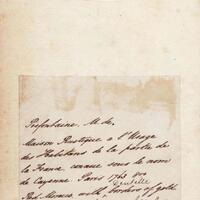 Prefontaine. M. de.
Maison Rustique a l'Usage
des Habitans de la partie de
la France connue sous le nom
de Cayenne Paris 1763 8vo
dentelle
Red Morocco with borders of gold